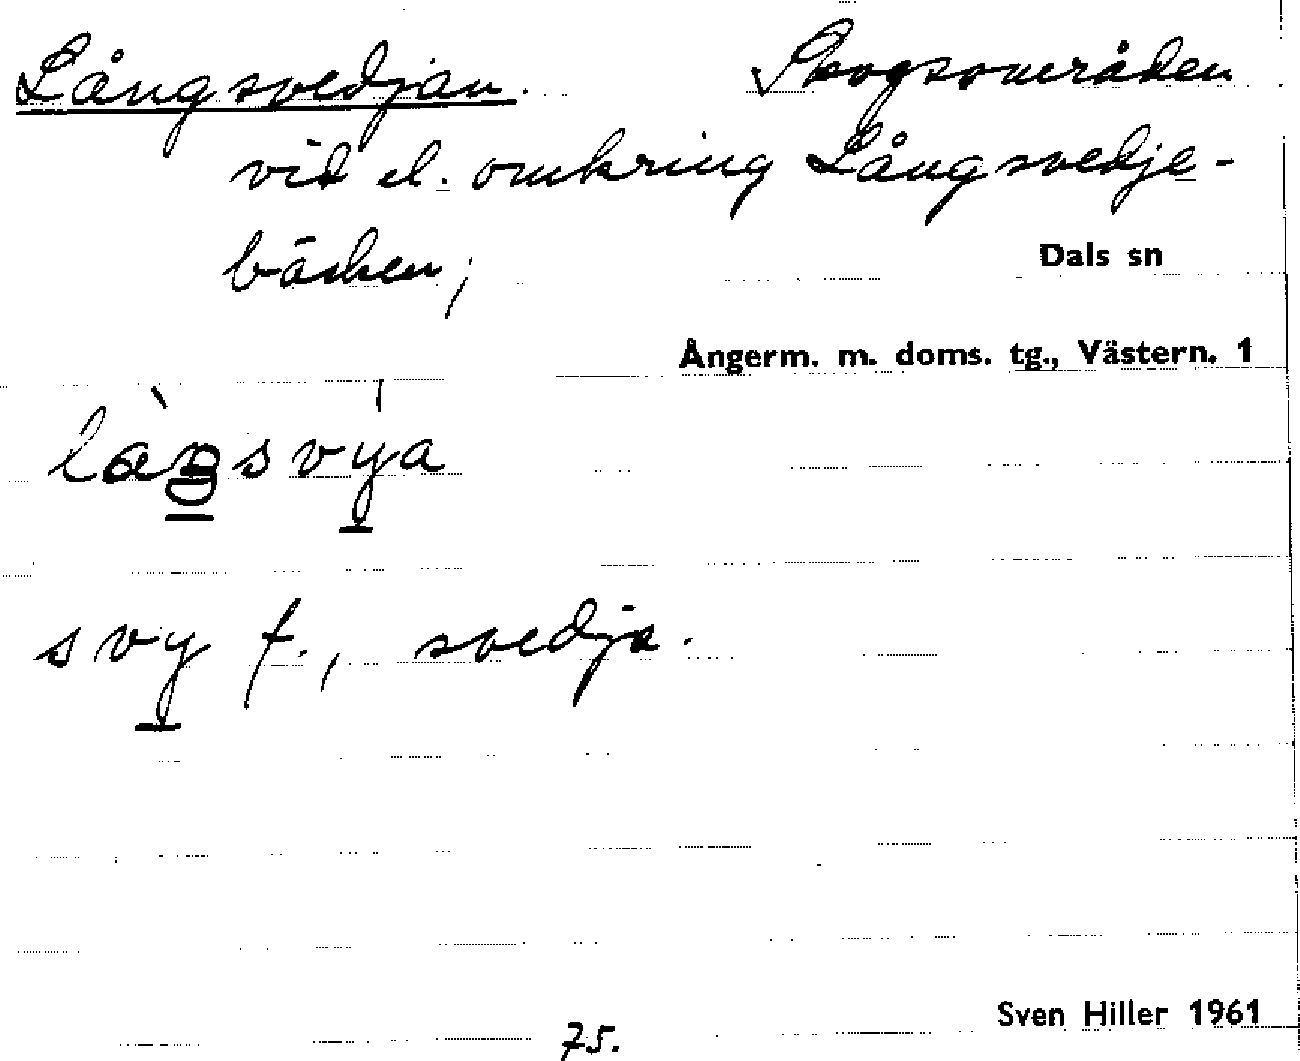 Långsvedjan. Skogsområden
vid el. omkring Långsvedje-
bäcken;
Dals sn
Ångerm. m. doms. tg., Västern. 1
svy f., svedja.
Sven Hiller 1961
75.